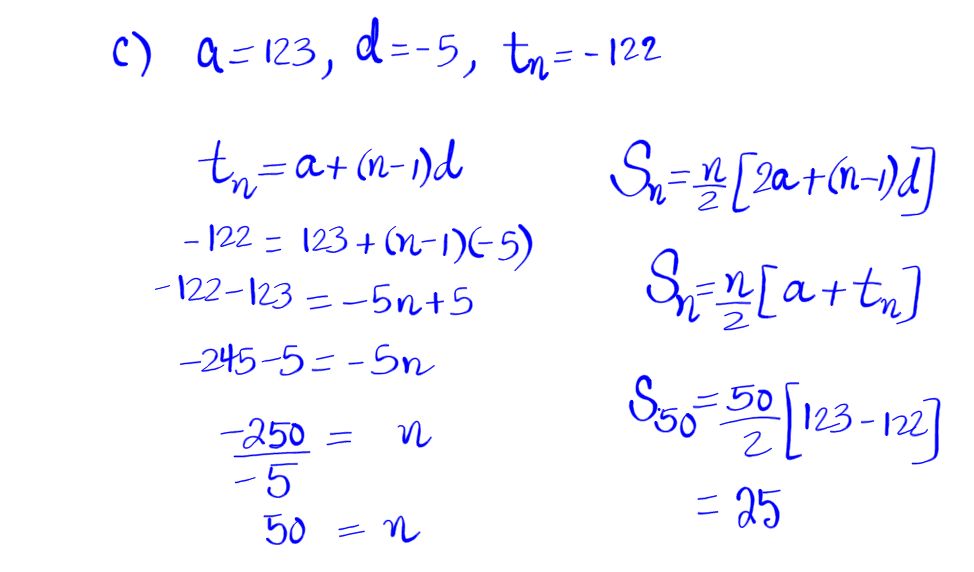 c) a = 123, d = -5, tₙ = -122
tₙ = a + (n-1)d
-122 = 123 + (n-1)(-5)
-122-123 = -5n+5
-245-5 = -5n
-250/-5 = n
50 = n
Sₙ = n/2 [2a + (n-1)d]
Sₙ = n/2 [a + tₙ]
S₅₀ = 50/2 [123 - 122]
= 25